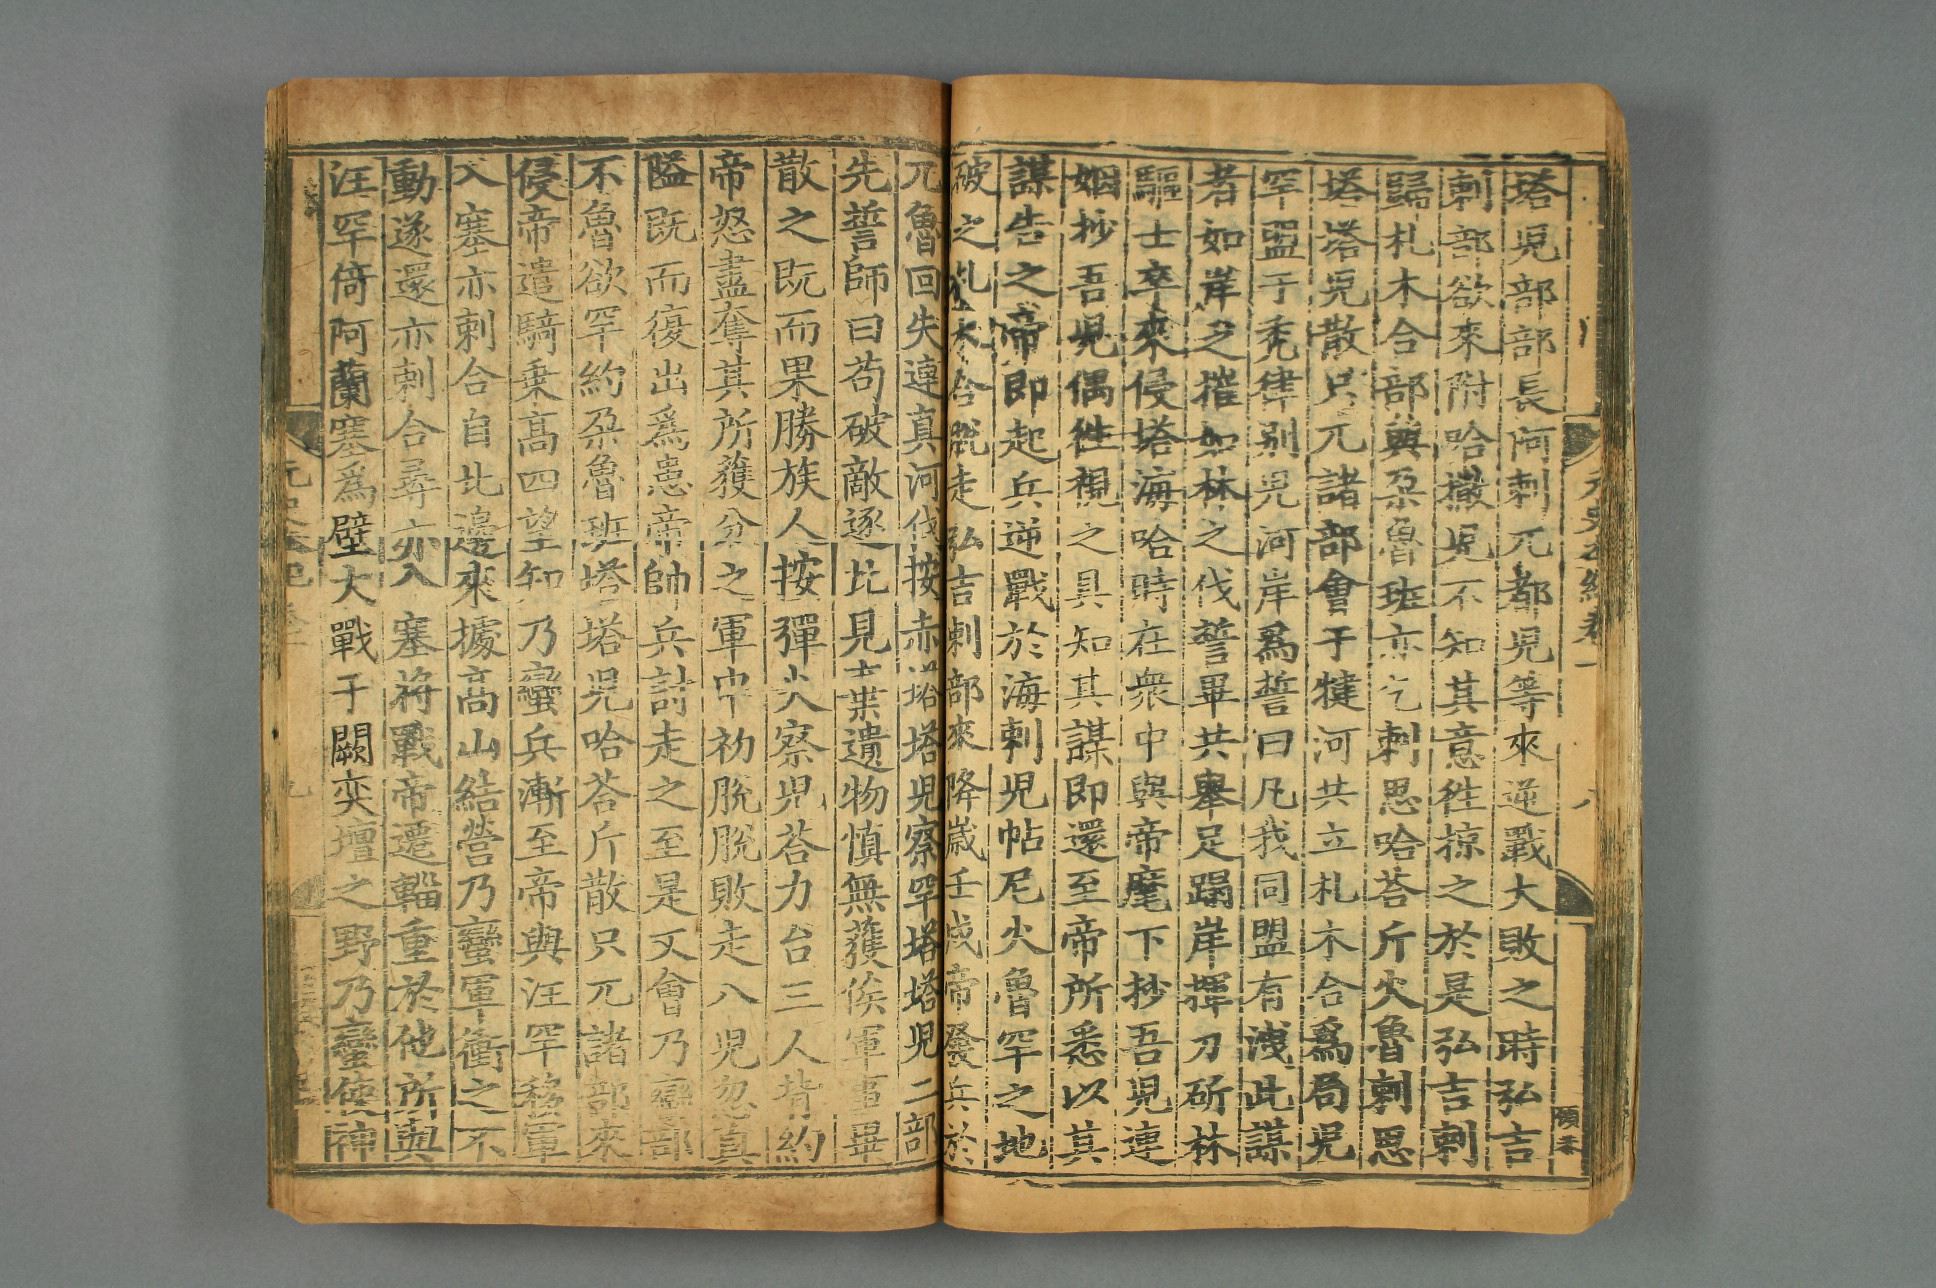 塔兒部部長阿剌兀都兒等來逆戰大敗之時弘吉
剌部欲來附哈撒兒不知其意徃掠之於是弘吉剌
歸札木合部與朶魯班亦乞剌思哈荅斤火魯剌思
塔塔兒散只兀諸部會于犍河共立札木合爲局兒
罕盟于禿律别兒河岸爲誓曰凡我同盟有洩此謀
者如岸之摧如林之伐誓畢共舉足蹋岸揮刀斫林
驅士卒來侵塔海哈時在衆中與帝麾下抄吾兒連
姻抄吾兒偶徃視之具知其謀即還至帝所悉以其
謀告之帝即起兵逆戰於海剌兒帖尼火魯罕之地
破之札木合脫走弘吉剌部來降歲壬戌帝發兵於
兀魯回失連真河伐按赤塔塔兒察罕塔塔兒二部
先誓師曰苟破敵逐北見棄遺物慎無獲俟軍事畢
散之既而果勝族人按彈火察兒荅力台三人背約
帝怒盡奪其所獲分之軍中初脫脫敗走八兒忽真
隘既而復出爲患帝帥兵討走之至是又會乃蠻部
不魯欲罕約朶魯班塔塔兒哈荅斤散只兀諸部來
侵帝遣騎乗高四望知乃蠻兵漸至帝與汪罕移軍
入塞亦剌合自北邊來據高山結營乃蠻軍衝之不
動遂還亦剌合尋亦入塞將戰帝遷輜重於他所與
汪罕倚阿蘭塞爲壁大戰于闕奕壇之野乃蠻使神